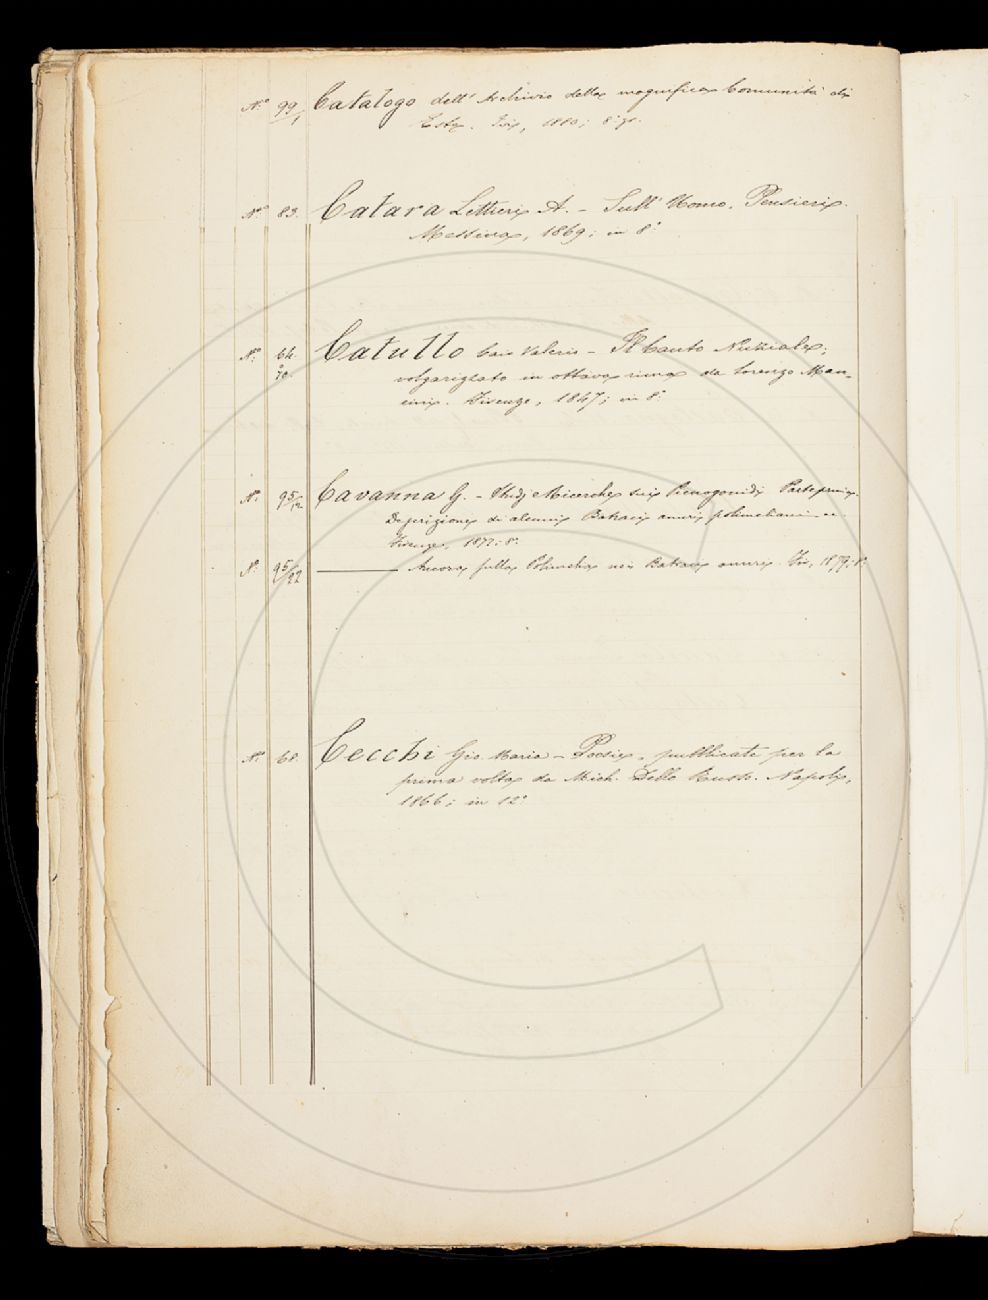 N.° 99/1 Catalogo dell' Archivio della magnifica Comunità di
Este. Ivi, 1880; 8° gr.
N.° 83. Catara Lettieri A. – Sull' Uomo. Pensieri.
Messina, 1869; in 8°
N.° 64. Catullo Caio Valerio – Il Canto Nuziale;
a 70. volgarizzato in ottava rima da Lorenzo Man-
cini. Firenze, 1847; in 8°.
N.° 95/12 Cavanna G. – Studj e Ricerche sui Picnogonidi Parte prima.
Descrizione di alcuni Batraci anuri polimeliani
Firenze, 1877; 8°.
N.° 95/22 ——— Ancora sulla Polimelia nei Batraci anuri. Ivi, 1879; 8°.
N.° 68. Cecchi Gio. Maria – Poesie, pubblicate per la
prima volta da Mich. Dello Russo. Napoli,
1866; in 12°.